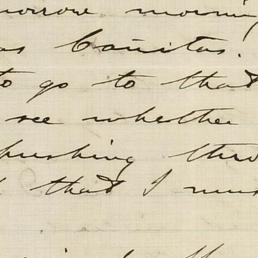 morrow morning
as Cañitas.
to go to that
see whether
pushing thro
that I mus